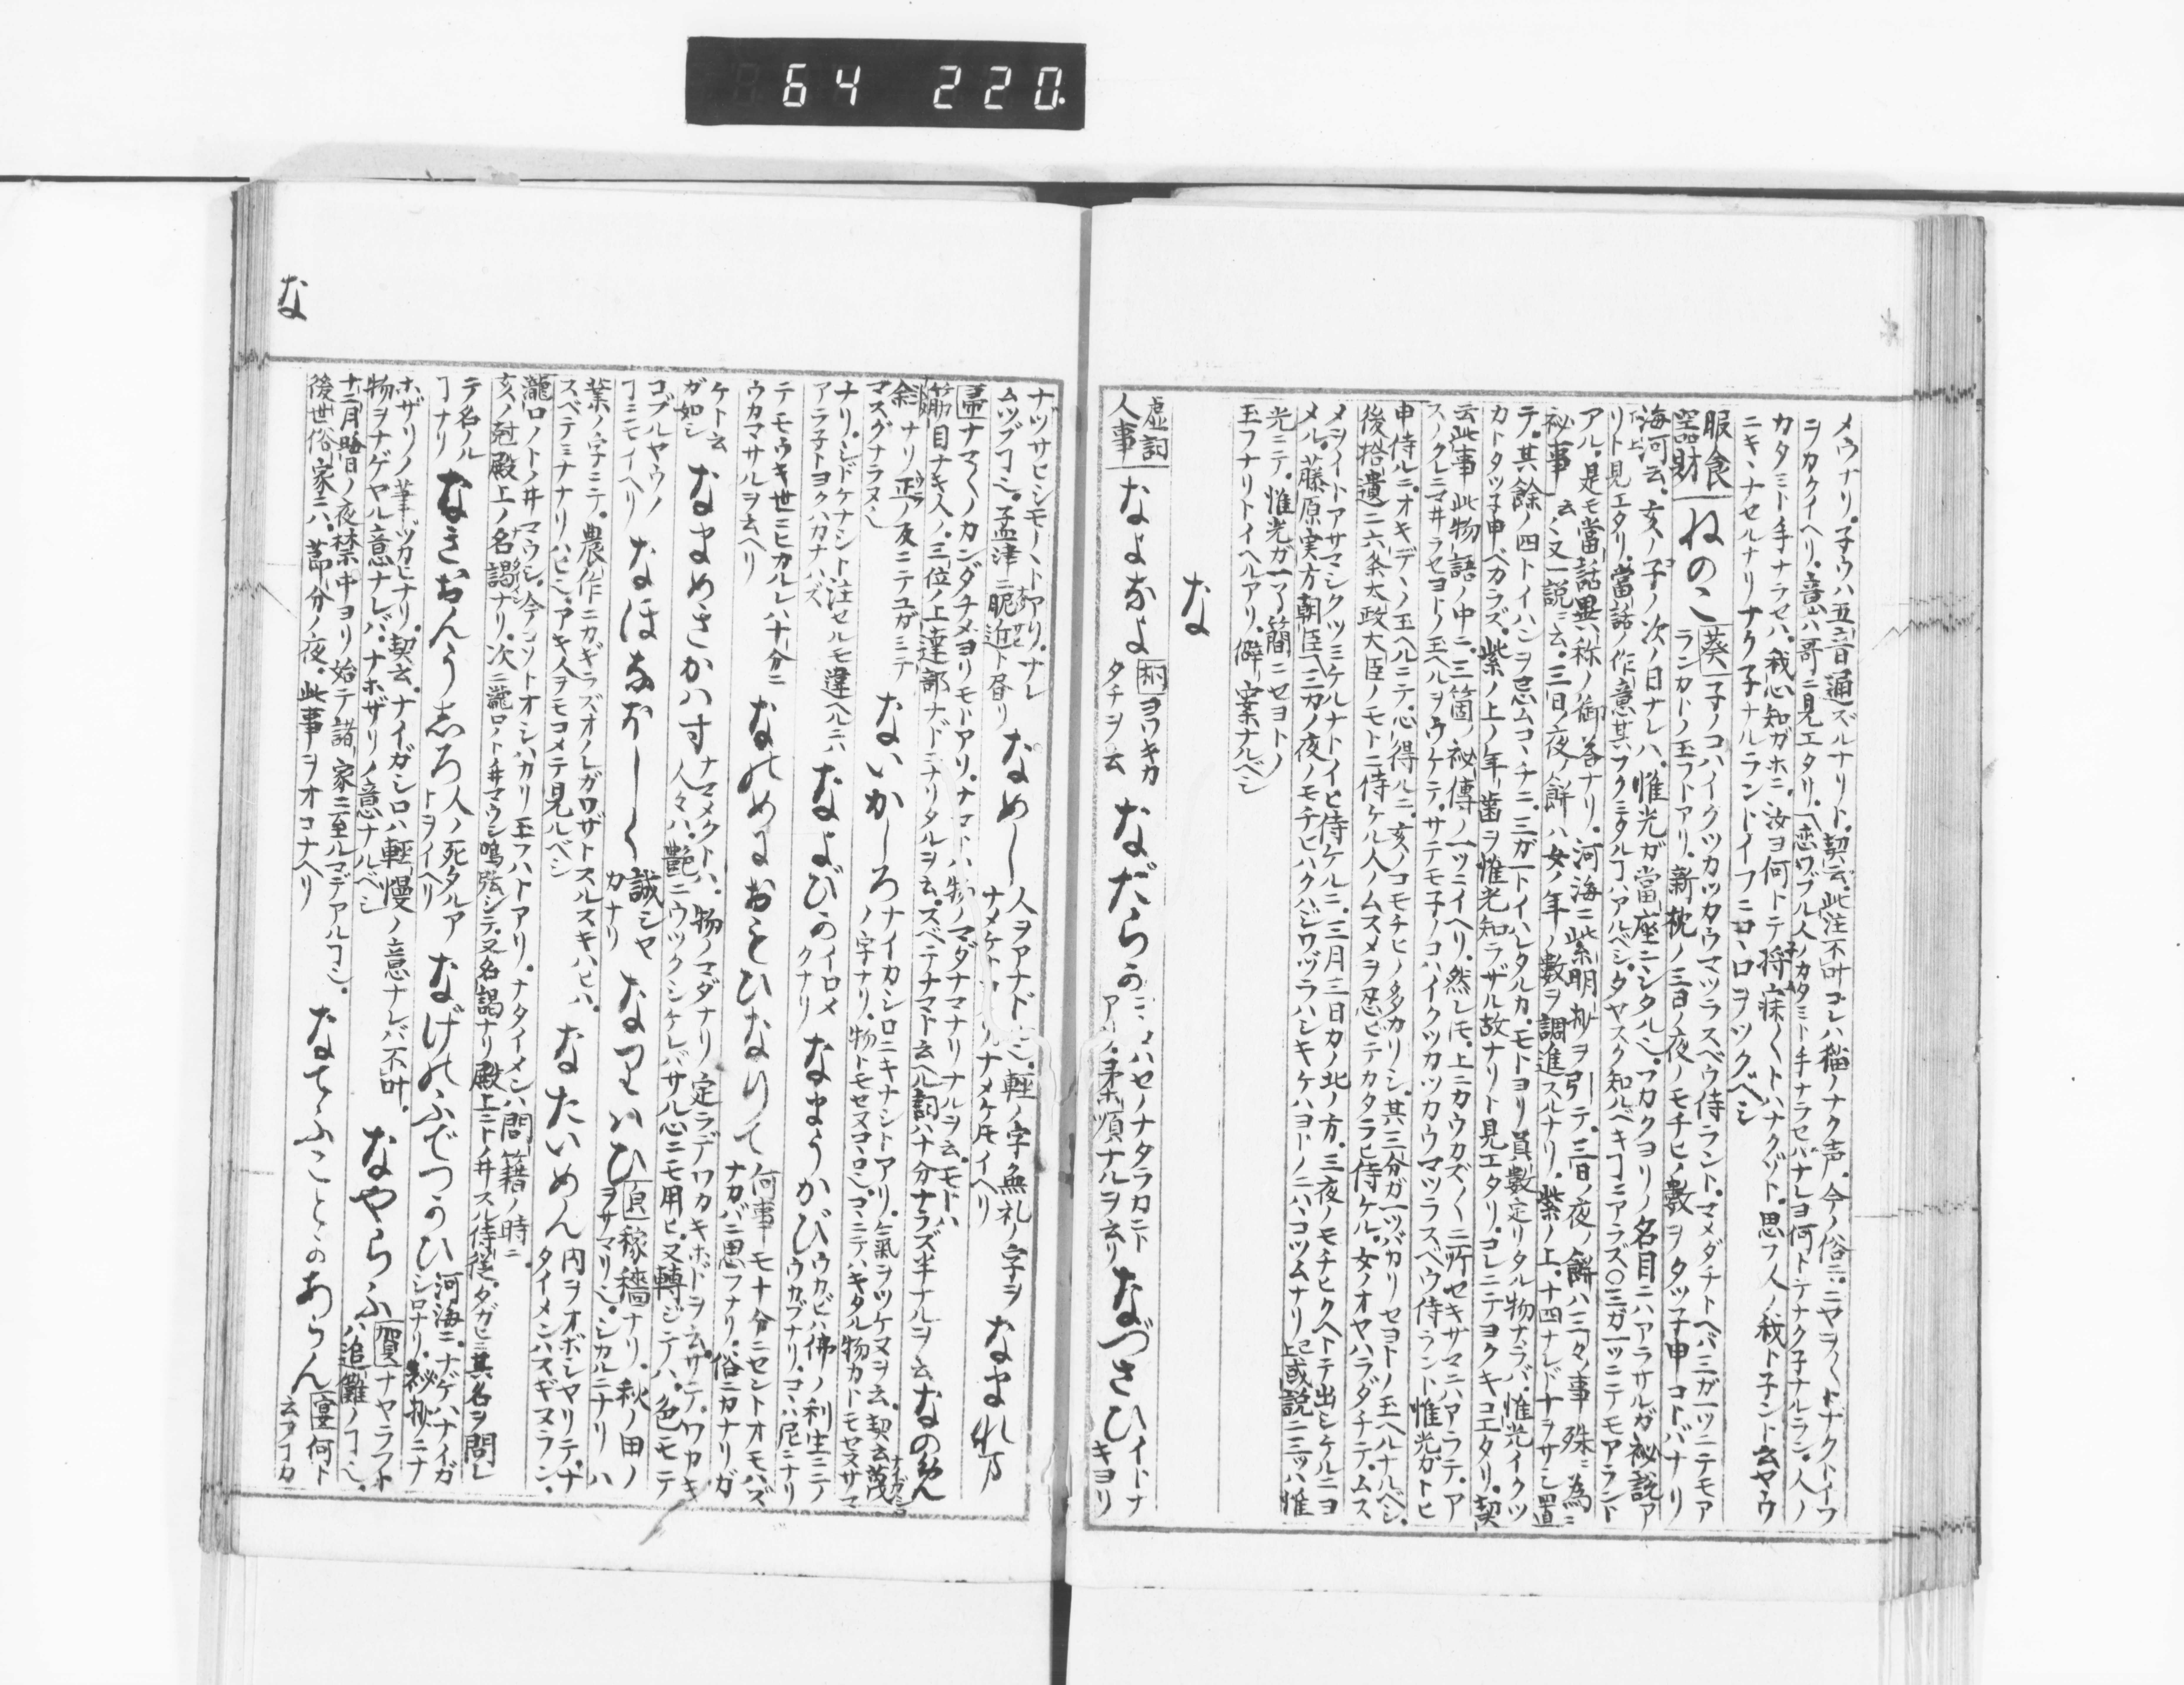 64 220.
メウナリ。子ウハ五音通ズルナリト。契云。此注不叶。コレハ猫ノナク声。今ノ俗ニ。ニヤヲ〱トナクトイフ
ヲカクイヘリ。意ハ哥ニ見エタリ。〽恋ワブル人ノカタミト手ナラセバナレヨ何トテナク子ナルラン。人ノ
カタミト手ナラセバ。我心知ガホニ。汝ヨ何トテ。将寐〱トハナクゾト。思フ人ノ我ト子ント云ヤウ
ニキヽナセルナリ。ナク子ナルラントイフニコヽロヲツクベシ
服食
器財
ねのこ
葵 子ノコハイクツカツカウマツラスベウ侍ラント。マメダチトヘバ三ガ一ツニテモア
ランカトノ玉フトアリ。新枕ノ三日ノ夜ノモチヒノ數ヲタツ子申コトバナリ
海河云。亥ノ子ノ次ノ日ナレハ。惟光ガ當座ニシタルヽ。フカクヨリノ名目ニハアラサルガ。秘説ア
リト見エタリ。當話ノ作意其ハフクミタルヿハアルベシ。タヤスク知ルベキヿニアラズ○三ガ一ツニテモアラント
アル。是モ當話異称ノ御答ナリ。河海ニ紫明抄ヲ引テ。三日ノ夜ノ餅ハ三々ノ事殊ニ為ニ
秘事云々又一説ニ云。三日ノ夜ノ餅ハ女ノ年ノ數ヲ調進スルナリ。紫ノ上。十四ナレド十ヲサシ置
テ。其餘ノ四トイハンヲ忌ムコヽチニ。三ガ一トイハレタルカ。モトヨリ員數定リタル物ナラバ。惟光イクツ
カトタツ子申ベカラズ。紫ノ上ノ年齒ヲ惟光知ラザル故ナリト見エタリ。コレニテヨクキコエタリ。契
云此事此物語ノ中ニ。三箇ノ秘傳ノ一ツニイヘリ。然レモ。上ニカウカズ〱ニ所セキサマニハアラテ。ア
スノクレニマヰラセヨトノ玉ヘルヲウケテ。サテモ子ノコハイクツカツカウマツラスベウ侍ラント惟光ガトヒ
申侍ルニ。オキデノ玉ヘルニテ。心得ルニ。亥ノコモチヒノ多カリシ。其三分ガ一ツバカリセヨトノ玉ヘルナルベシ。
後拾遺ニ六条太政大臣ノモトニ侍ケル人ノムスメヲ忍ビテカタラヒ侍ケル。女ノオヤハラダチテ。ムス
メヲイトアサマシクツミケルナトイヒ侍ケルニ。三月三日カノ北ノ方。三夜ノモチヒクヘトテ出シケルニヨ
メル。藤原実方朝臣〽三カノ夜ノモチヒハクハジワヅラハシキケハヨトノニハヽコツムナリ已上或説ニ三ツハ惟
光ニテ。惟光ガ一了簡ニセヨトノ
玉フナリトイヘルアリ。僻案ナルベシ
な
虚詞
人事
なよなよ 桐 ヨワキカタチヲ云
なだらか ミヽマハセノナタラカニト
アリ。柔順ナルヲ云リ
なづさひ イトナキヨリ
ナヅサヒシモノトアリ。ナレ
ムツブヿヽ。孟津ニ昵近ト有リ
なめし 人ヲアナドル。輕ノ字無礼ノ字ヲ
ナメケナリ。ナメケ𪜈イヘリ
なまれ万
帚 ナマ〱ノカンダチメヨリモトアリ。ナマトハ物ノマダナマナリナルヲ云。モトハ
筋目ナキ人ノ。三位ノ上達部ナドニナリタルヲ云。スベテナマト云ヘル詞ハ十分ナラズ半ナルヲ云
なのめ
斜ナリ正ノ反ニテユガミテ
マスグナラヌヽ
ないがしろ ナイカシロニキナシトアリ。氣ヲツケヌヲ云。契云蔑
ノ字ナリ。物トモセヌコヽロヽ。コヽニテハキタル物カトモセヌサマ
ナリ。シドケナシト注セルモ違ヘルニハ
アラ子トヨクハカナハズ
なよびか イロメクナリ
なまうかび ウカビハ佛ノ利生ニテ
ウカブナリ。コヽハ尼ニナリ
テモウキ世ニヒカルレハ十分ニ
ウカマサルヲ云ヘリ
なのめにおもひなりて 何事モ十分ニセントオモハズ
ナカバニ思フナリ。俗ニカナリガ
ケト云
ガ如シ
なまめきかはす ナマメクトハ。物ノマダナリ定ラデワカキホドヲ云。サテ。ワカキ
人々ハ。艶ニウツクシケレバサル心ニモ用ヒ。又轉ジテハ。色モテ
コブルヤウノ
ヿニモイヘリ
なほなほし〱 誠シヤカナリ
なりはひ 頁 稼穡ナリ。秋ノ田ノ
ヲサマリヽ。シカルニナリハ
業ノ字ニテ。農作ニカギラズオノレガワザトスルスキハヒハ。
スベテミナナリハヒヽ。アキ人ヲモコメテ見ルベシ
なたいめん 内ヲオボシヤリテ。ナ
タイメンハスギヌラン。
瀧口ノトノ井マウシ。今コソトオシハカリ玉フハトアリ。ナタイメンハ問籍ノ時ニ。
亥ノ尅殿上ノ名謁ナリ。次ニ瀧口ノト井マウシ鳴弦シテ。又名謁ナリ殿上ニトノ井スル侍従。タガヒニ其名ヲ問レ
テ名ノル
ヿナリ
なきおんうしろ 人ノ死タルア
トヲイヘリ
なげのふでつかひ 河海ニ。ナゲハナイガ
シロナリ。秘抄ニナ
ホザリノ筆ヅカヒナリ。契云。ナイガシロハ輕慢ノ意ナレバ不叶。
物ヲナゲヤル意ナレバ。ナホザリノ意ナルベシ
なやらふ 賀 ナヤラフト
ハ追儺ノヿヽ。
十二月晦日ノ夜禁中ヨリ始テ諸家ニ至ルマデアルヿヽ。
後世俗家ニハ。節分ノ夜。此事ヲオコナヘリ
なでふことかあらん 宴 何ト
云フヿカ
な